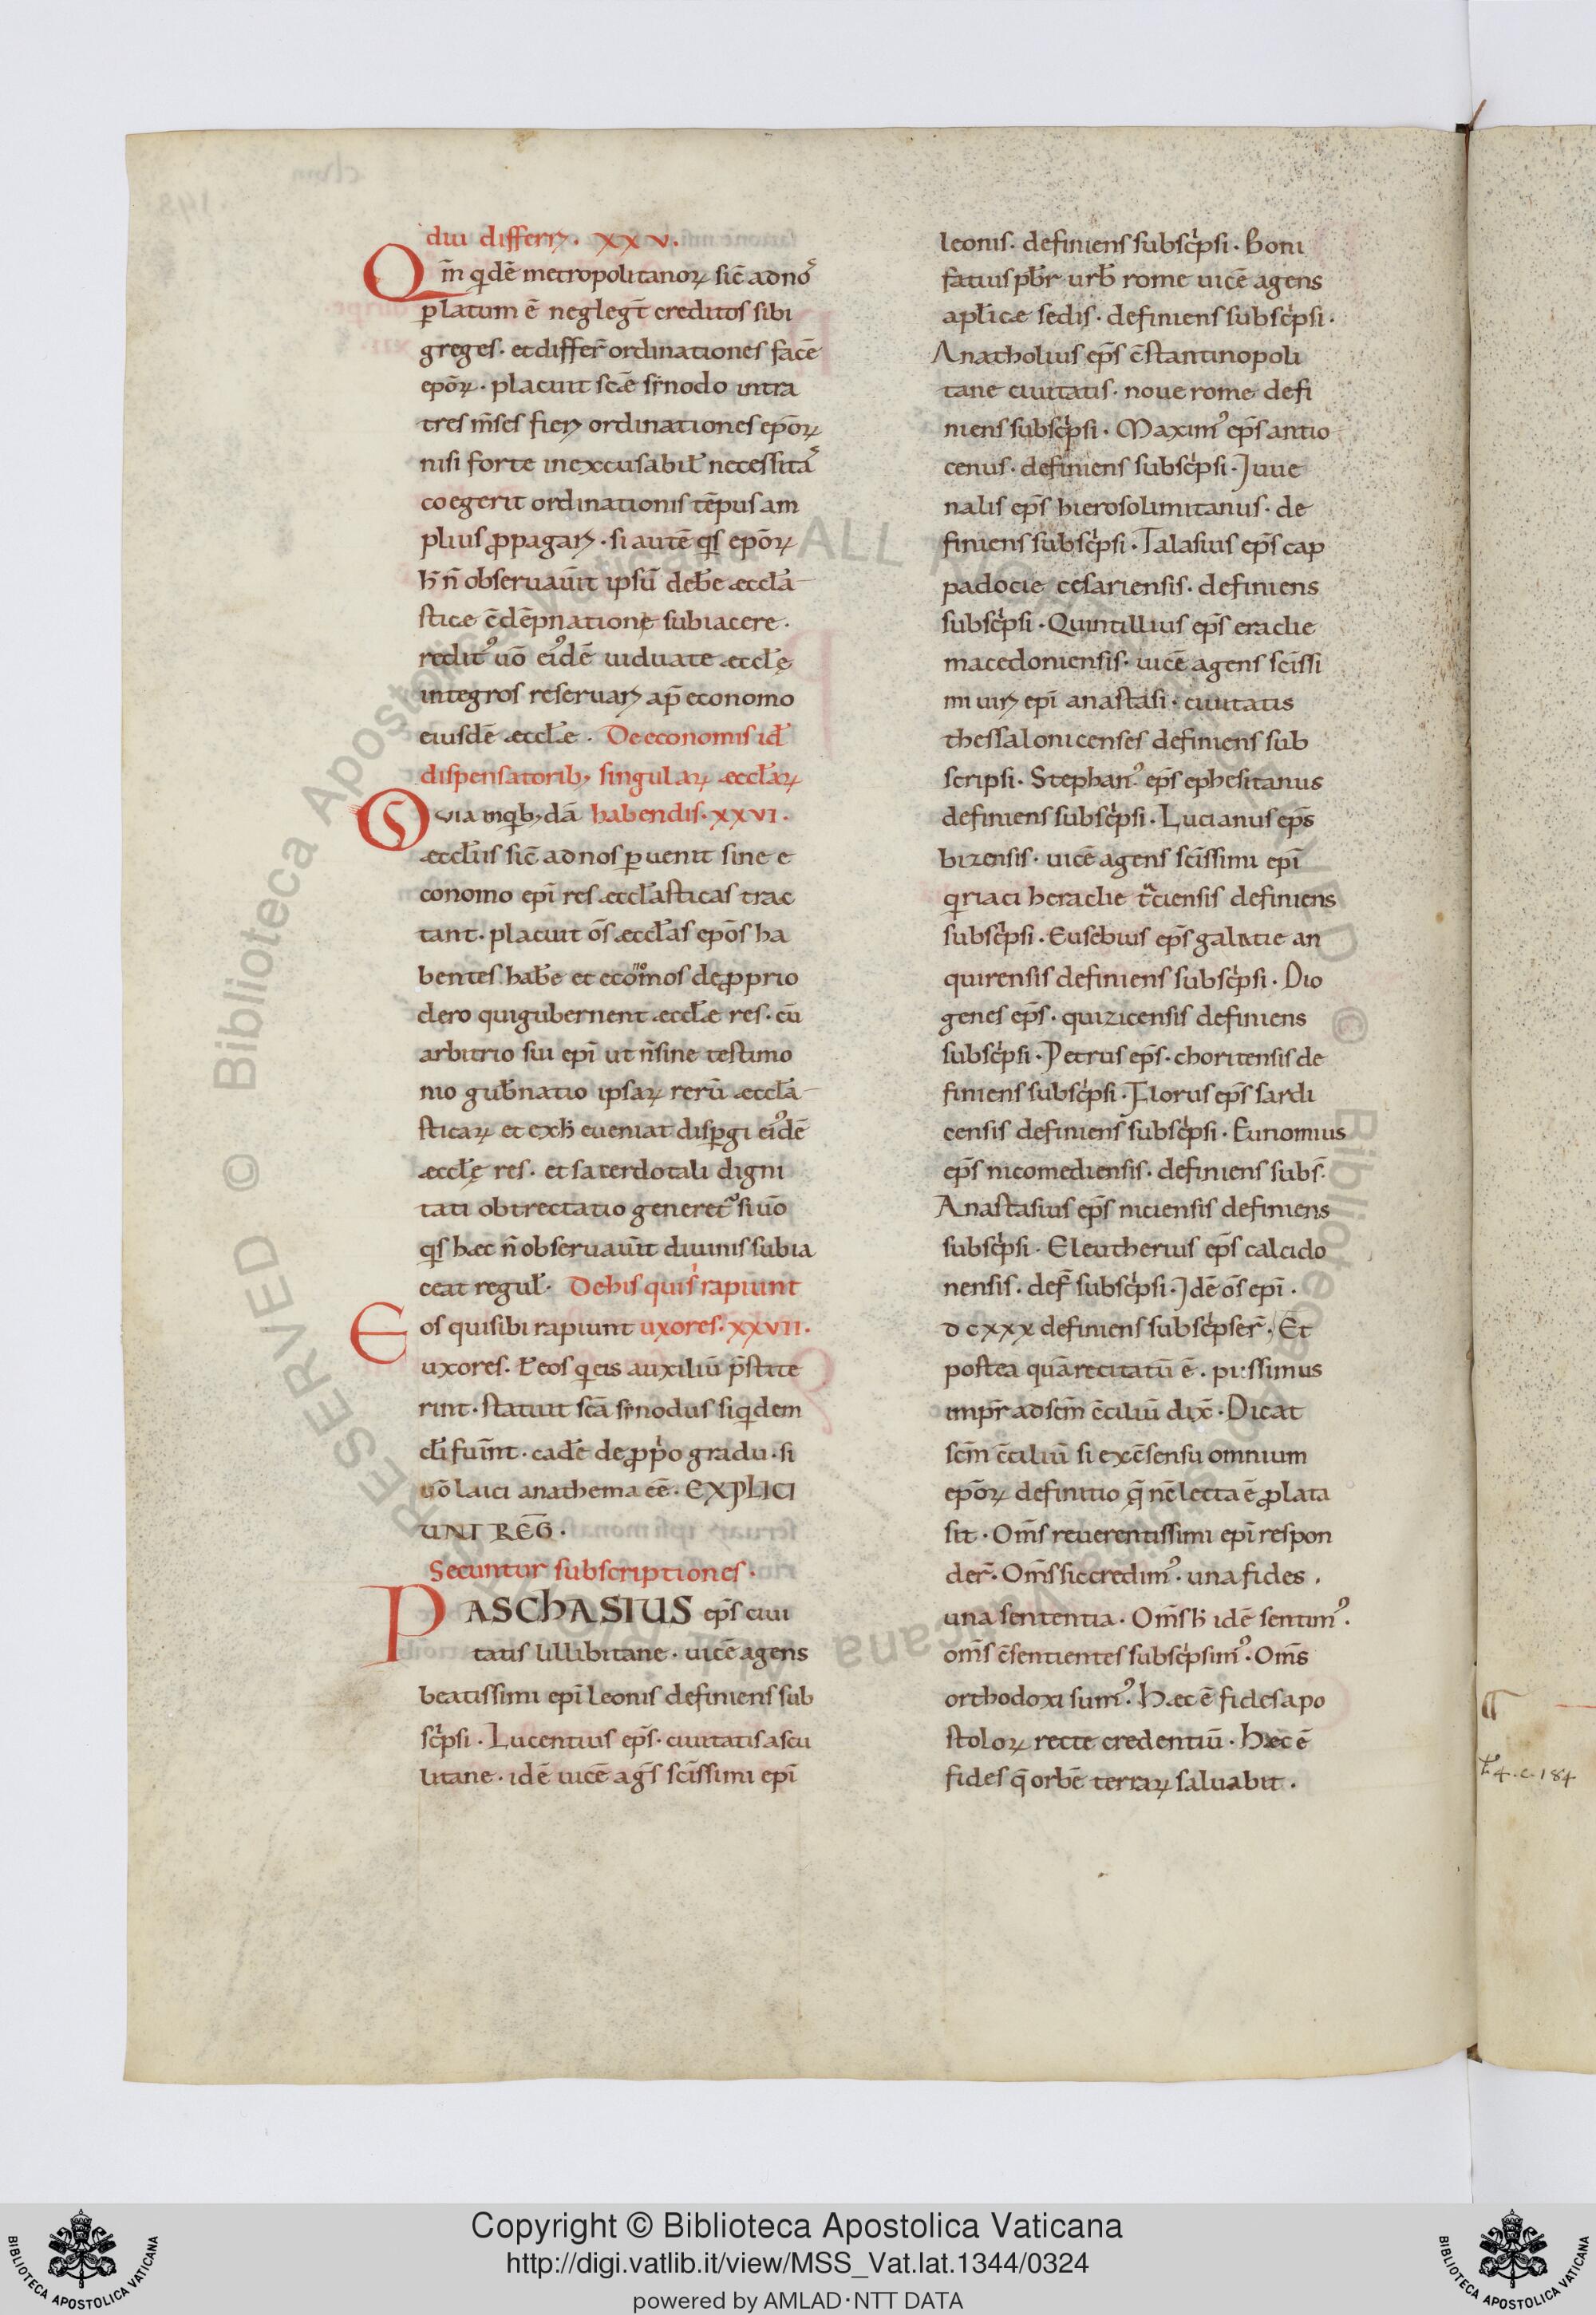 diu differri. xxv.
Qm̄ qdē metropolitanoꝝ sic̄ ad nos
platum ē neglegt̄ creditos sibi
greges. et differr̄ ordinationes facē
epōꝝ. placuit scǣ synodo intra
tres m̄ses fieri ordinationes epōꝝ
nisi forte inexcusabil̄ necessitaˢ
coegerit ordinationis tēpus am
plius ꝓpagari. si autē qs̄ epōꝝ
h̄ n̄ observaūit ipsū deb̄e æccl̄a
sticæ c̄dēpnatione subiacere.
reditꝰ uō eiꝰdē uiduate æccl̄ę
integros reseruari ap̄ economo
eiusdē æccl̄æ. De economis id̄
dispensatorib; singulaꝝ æccl̄aꝝ
Quia in qb;dā habendis. xxvi.
æccl̄iis sic̄ ad nos puenit sine e
conomo epī res æccl̄asticas trac
tant. placuit ōs æccl̄as epōs ha
bentes hab̄e et economos de ꝓprio
clero qui gubernent æccl̄æ res. cū
arbitrio sui epī ut n̄ sine testimo
nio gub̄natio ipsaꝝ rerū æccl̄a
sticaꝝ et ex h̄ eueniat dispgi eiꝰdē
æccl̄ę res. et sacerdotali digni
tati obtrectatio generet̉ si uō
qs̄ hæc n̄ obseruaūit diuinis subia
ceat regul̄. De his qui s' rapiunt
Eos qui sibi rapiunt uxores. xxvii.
uxores. ł eos q eis auxiliū p̄stite
rint. statuit scā synodus siqdem
cl̄i fuīnt. cad̄e de ꝓp'o gradu. si
uō laici anathema eē. EXPLICI
UNT REḠ.
Secuntur subscriptiones.
PASChASIUS ep̄s ciui
tatis lillibitane. uicē agens
beatissimi epī leonis definiens sub
sc'psi. Lucentius ep̄s. ciuitatis ascu
litane. idē uicē ag̅s sc̄issimi epī
leonis. definiens subsc'psi. Boni
fatius pb̄r urb̄ rome uicē agens
apl̄icæ sedis. definiens subsc'psi.
Anatholius ep̄s c̄stantinopoli
tane ciuitatis. noue rome defi
niens subsc'psi. Maximꝰ ep̄s antio
cenus. definiens subsc'psi. Juue
nalis ep̄s hierosolimitanus. de
finiens subsc'psi. Talasius ep̄s cap
padocie cesariensis. definiens
subsc'psi. Quintillius ep̄s eraclie
macedoniensis. uicē agens sc̄issi
mi uiri epī anastasi. ciuitatis
thessalonicenses definiens sub
scripsi. Stephanꝰ ep̄s ephesitanus
definiens subsc'psi. Lucianus ep̄s
bizensis. uicē agens sc̄issimi epī
q'riaci heraclie tͣciensis definiens
subsc'psi. Eusebius ep̄s galatie an
quirensis definiens subsc'psi. Dio
genes ep̄s. quizicensis definiens
subsc'psi. Petrus ep̄s. choritensis de
finiens subsc'psi. Florus ep̄s sardi
censis definiens subsc'psi. Eunomius
ep̄s nicomediensis. definiens subs̄.
Anastasius ep̄s niciensis definiens
subsc'psi. Eleutherius ep̄s calcido
nensis. def̄ subsc'psi. Jdē ōs epī.
dcxxx definiens subsc'pser̄. Et
postea quā recitatū ē. piissimus
impr̄ ad scm̄ c̄ciliū dix̄. Dicat
scm̄ c̄ciliū si ex c̄sensu omnium
epōꝝ definitio q̄ nc̄ lecta ē ꝓlata
sit. Om̄s reuerentissimi epī respon
der̄. Om̄s sic credimꝰ. una fides.
una sententia. Om̄s h̄ idē sentimꝰ.
om̄s c̄sentientes subsc'psimꝰ. Om̄s
orthodoxi sumꝰ. Hæc ē fides apo
stoloꝝ recte credentiū. Hæc ē
fides q̄ orbē terraꝝ saluabit.
t. 4. c. 184
Copyright © Biblioteca Apostolica Vaticana
http://digi.vatlib.it/view/MSS_Vat.lat.1344/0324
powered by AMLAD·NTT DATA
BIBLIOTECA APOSTOLICA VATICANA
BIBLIOTECA APOSTOLICA VATICANA